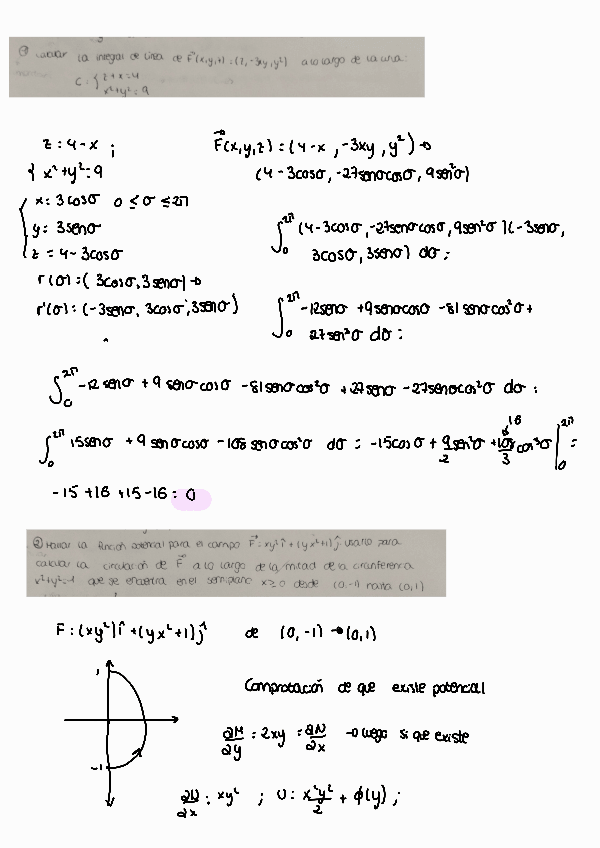 ① Calcular la integral de línea de F(x,y,z) = (z, -3xy, y²) a lo largo de la curva:
C: { z+x=4
x²+y²=9
z = 4-x ;
{ x²+y²=9
F(x,y,z) = (4-x, -3xy, y²) →
(4-3cosσ, -27senσcosσ, 9sen²σ)
x = 3cosσ 0 ≤ σ ≤ 2π
y = 3senσ
z = 4-3cosσ
∫₀^2π (4-3cosσ, -27senσcosσ, 9sen²σ)(-3senσ,
3cosσ, 3senσ) dσ =
r(σ) = (3cosσ, 3senσ) →
r'(σ) = (-3senσ, 3cosσ, 3senσ)
∫₀^2π -12senσ + 9senσcosσ - 81senσcos²σ +
27sen³σ dσ =
∫₀^2π -12senσ + 9senσcosσ - 81senσcos²σ + 27senσ - 27senσcos²σ dσ =
∫₀^2π 15senσ + 9senσcosσ - 108senσcos²σ dσ = -15cosσ + 9/2 sen²σ + 108/3 cos³σ |₀^2π =
16
-15 + 16 + 15 - 16 = 0
② Hallar la función potencial para el campo F = xy² î + (yx²+1) ĵ usarlo para
calcular la circulación de F a lo largo de la mitad de la circunferencia
x²+y²=1 que se encuentra en el semiplano x≥0 desde (0,-1) hasta (0,1)
F = (xy²) î + (yx²+1) ĵ de (0,-1) → (0,1)
1
-1
Comprobación de que existe potencial
∂M/∂y = 2xy = ∂N/∂x → luego si que existe
∂U/∂x = xy² ; U = x²y²/2 + φ(y) ;